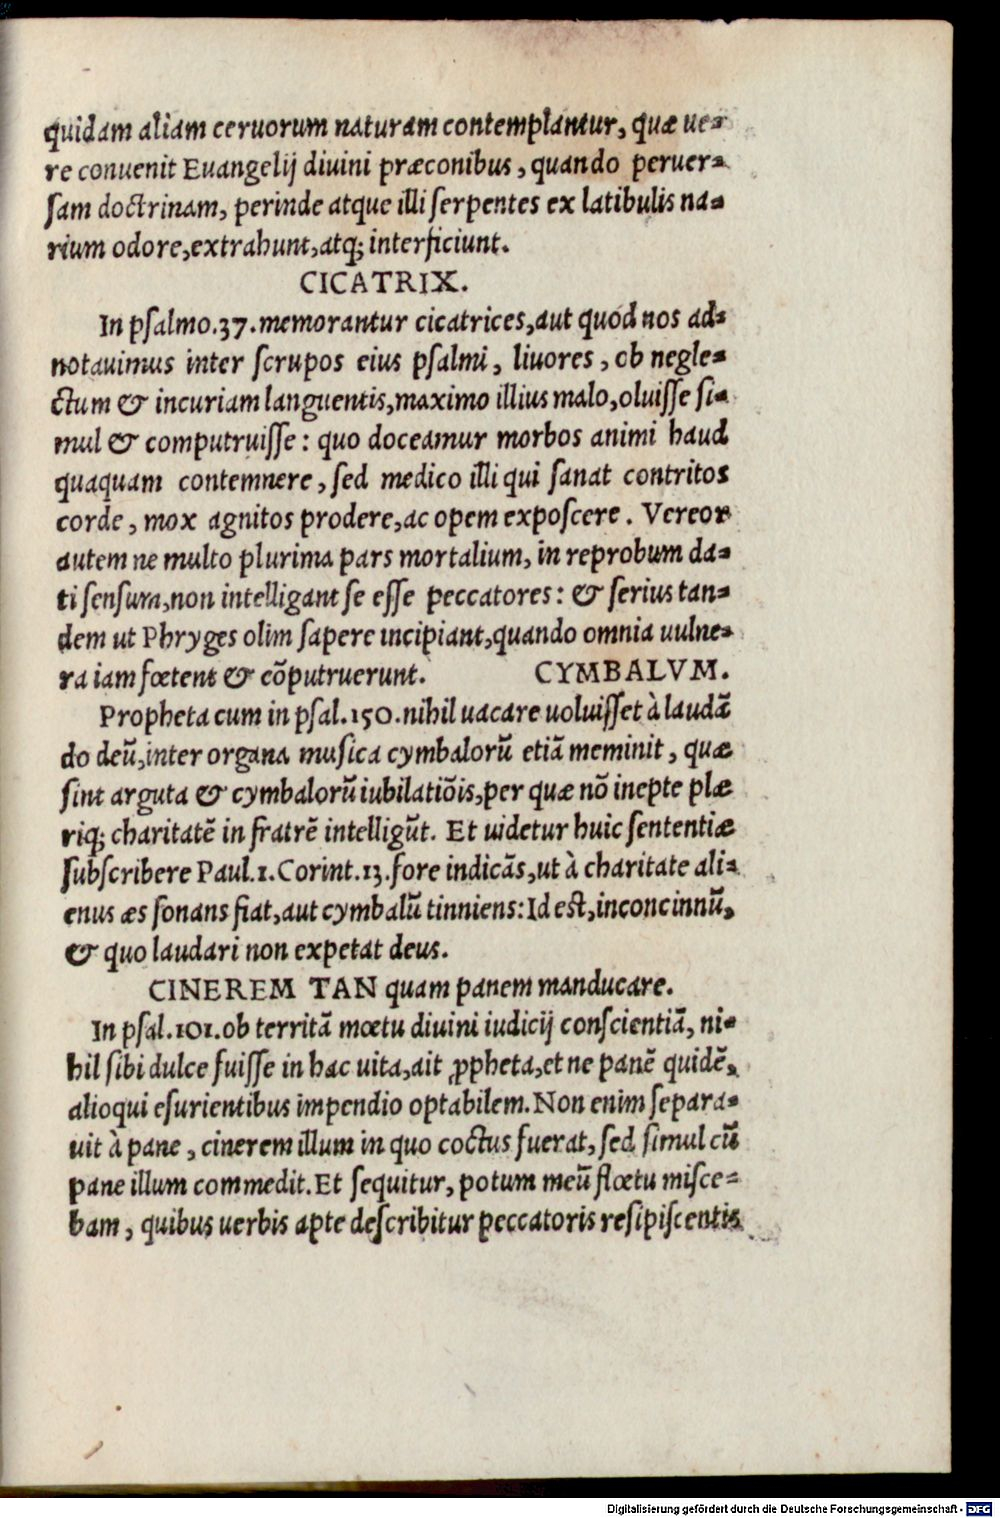 quidam aliam ceruorum naturam contemplantur, quæ ue-
re conuenit Euangelij diuini præconibus, quando peruer-
sam doctrinam, perinde atque illi serpentes ex latibulis na-
rium odore, extrahunt, atq; interficiunt.
CICATRIX.
In psalmo.37.memorantur cicatrices, aut quod nos ad-
notauimus inter scrupos eius psalmi, liuores, ob negle-
ctum & incuriam languentis, maximo illius malo, oluisse si-
mul & computruisse: quo doceamur morbos animi haud
quaquam contemnere, sed medico illi qui sanat contritos
corde, mox agnitos prodere, ac opem exposcere. Vereor
autem ne multo plurima pars mortalium, in reprobum da-
ti sensum, non intelligant se esse peccatores: & serius tan-
dem ut Phryges olim sapere incipiant, quando omnia uulne-
ra iam fœtent & cõputruerunt. CYMBALVM.
Propheta cum in psal.150.nihil uacare uoluisset à laudã
do deũ, inter organa musica cymbalorũ etiã meminit, quæ
sint arguta & cymbalorũ iubilatiõis, per quæ nõ inepte plæ
riq; charitatẽ in fratrẽ intelligũt. Et uidetur huic sententiæ
subscribere Paul.1.Corint.13.fore indicãs, ut à charitate ali-
enus æs sonans fiat, aut cymbalũ tinniens: Id est, inconcinnũ,
& quo laudari non expetat deus.
CINEREM TAN quam panem manducare.
In psal.101.ob territã mœtu diuini iudicij conscientiã, ni-
hil sibi dulce fuisse in hac uita, ait ꝓpheta, et ne panẽ quidẽ,
alioqui esurientibus impendio optabilem. Non enim separa-
uit à pane, cinerem illum in quo coctus fuerat, sed simul cũ
pane illum commedit. Et sequitur, potum meũ flœtu misce-
bam, quibus uerbis apte describitur peccatoris resipiscentis
Digitalisierung gefördert durch die Deutsche Forschungsgemeinschaft - DFG